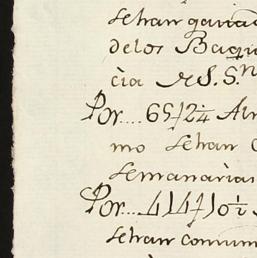 se han ganad
de los Baqu
cia de S. S.n
Por.... 65)2¼ Alm
mo se han C
semanarias
Por... 414)0½
se han comun